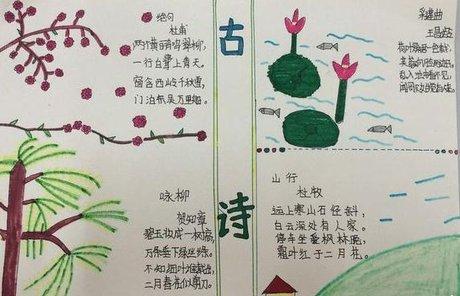 绝句
杜甫
两个黄鹂鸣翠柳,
一行白鹭上青天。
窗含西岭千秋雪,
门泊东吴万里船。
古
诗
采莲曲
王昌龄
荷叶罗裙一色裁,
咏柳
贺知章
碧玉妆成一树高,
万条垂下绿丝绦。
不知细叶谁裁出,
二月春风似剪刀。
山行
杜牧
远上寒山石径斜,
白云深处有人家。
停车坐爱枫林晚,
霜叶红于二月花。